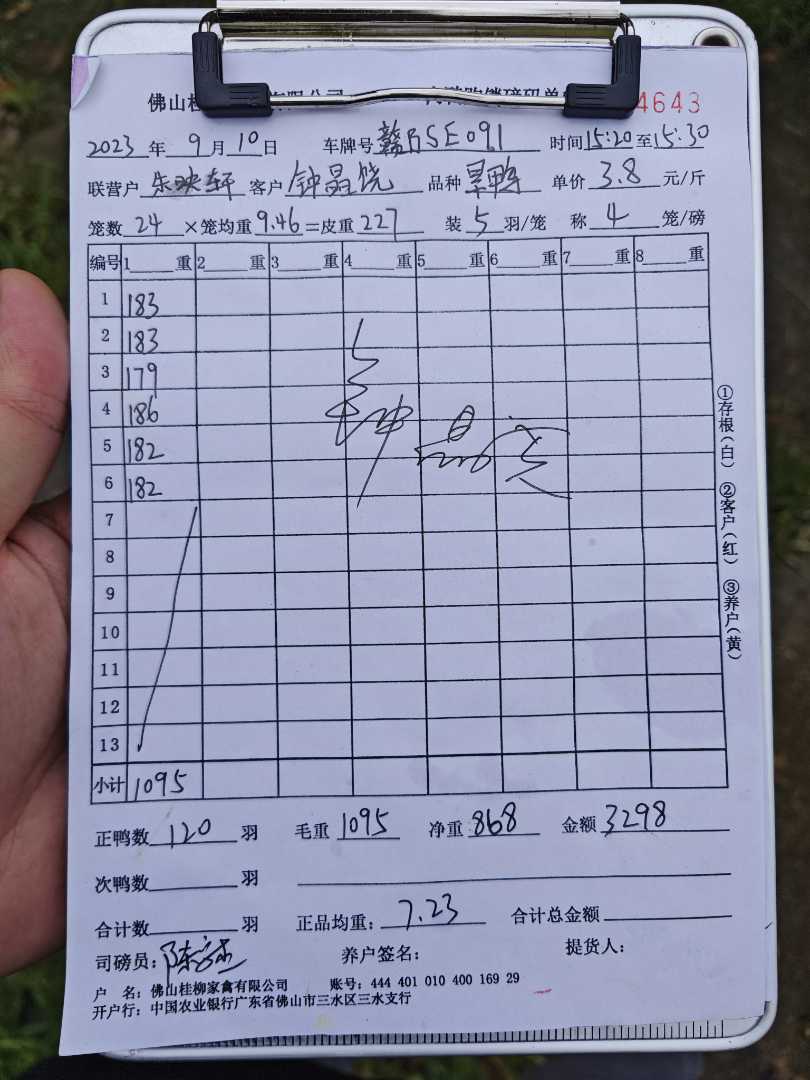 佛山桂 有限公司 4643
2023年9月10日 车牌号 赣BSE091 时间15:20至15:30
联营户 朱映轩 客户 钟晶 品种 单价3.8元/斤
笼数24×笼均重9.46=皮重227 装5羽/笼 称4笼/磅
编号 1 重 2 重 3 重 4 重 5 重 6 重 7 重 8 重
1 183
2 183
3 179
4 186
5 182
6 182
7
8
9
10
11
12
13
小计 1095
钟晶
①存根(白) ②客户(红) ③养户(黄)
正鸭数120羽 毛重1095 净重868 金额3298
次鸭数 羽
合计数 羽 正品均重:7.23 合计总金额
司磅员: 养户签名: 提货人:
户 名:佛山桂柳家禽有限公司 账号:444 401 010 400 169 29
开户行:中国农业银行广东省佛山市三水区三水支行